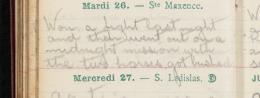 Mardi 26. — Ste Maxence.
Won a fight last night
and then went out on a
midnight mission with
the two horses got bushed
Mercredi 27. — S. Ladislas.